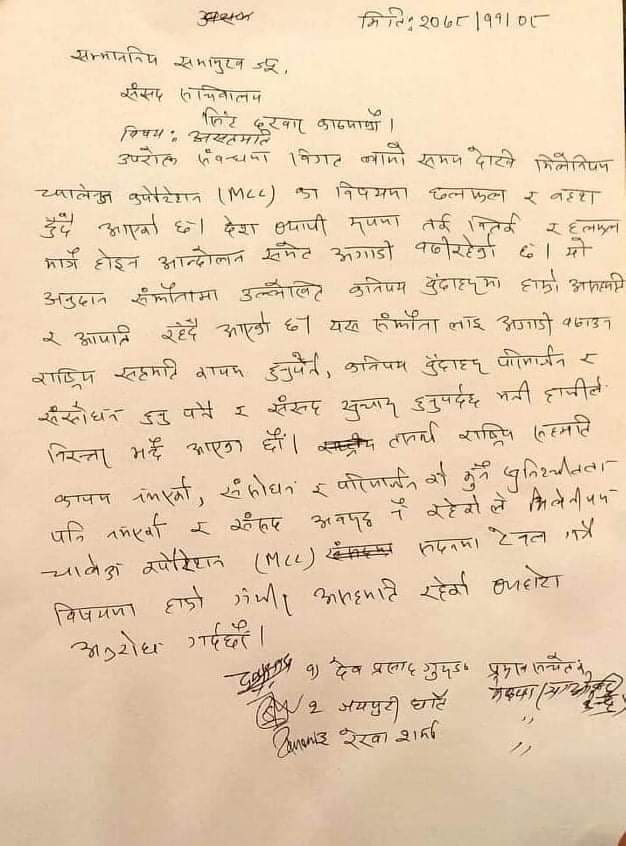 मिति: २०७८/११/०८
सम्माननिय सभामुख ज्यू,
संसद सचिवालय
सिंह दरवार काठमाण्डौं।
विषय: असहमति
उपरोक्त संवन्धमा विगत लामो समय देखि मिलेनियम
च्यालेञ्ज कर्पोरेशन (MCC) का विषयमा छलफल र वहश
हुँदै आएको छ। देश व्यापी रूपमा तर्क वितर्क र छलफल
मात्रै होइन आन्दोलन समेत अगाडी वढीरहेको छ। यो
अनुदान संझौतामा उल्लेखित कतिपय वुंदाहरूमा हाम्रो असहमति
र आपत्ति रहँदै आएको छ। यस संझौता लाइ अगाडी वढाउन
राष्ट्रिय सहमति कायम हुनुपर्ने, कतिपय वुंदाहरू परिमार्जन र
संसोधन हुनु पर्ने र संसद सुचारू हुनुपर्दछ भनी हामीले
निरन्तर भन्दै आएका छौं। तसर्थ राष्ट्रिय सहमति
कायम नभएको, संसोधन र परिमार्जन को कुनै सुनिश्चीतता
पनि नभएको र संसद अवरूद्ध नै रहेको ले मिलेनीयम
च्यालेञ्ज कर्पोरेशन (MCC) सदनमा टेवल गर्ने
विषयमा हाम्रो गंभीर असहमति रहेको व्यहोरा
अनुरोध गर्दछौं।
१) देव प्रसाद गुरुङ प्रमुख सचेतक
२ जयपुरी घर्ती
३ रेखा शर्मा "